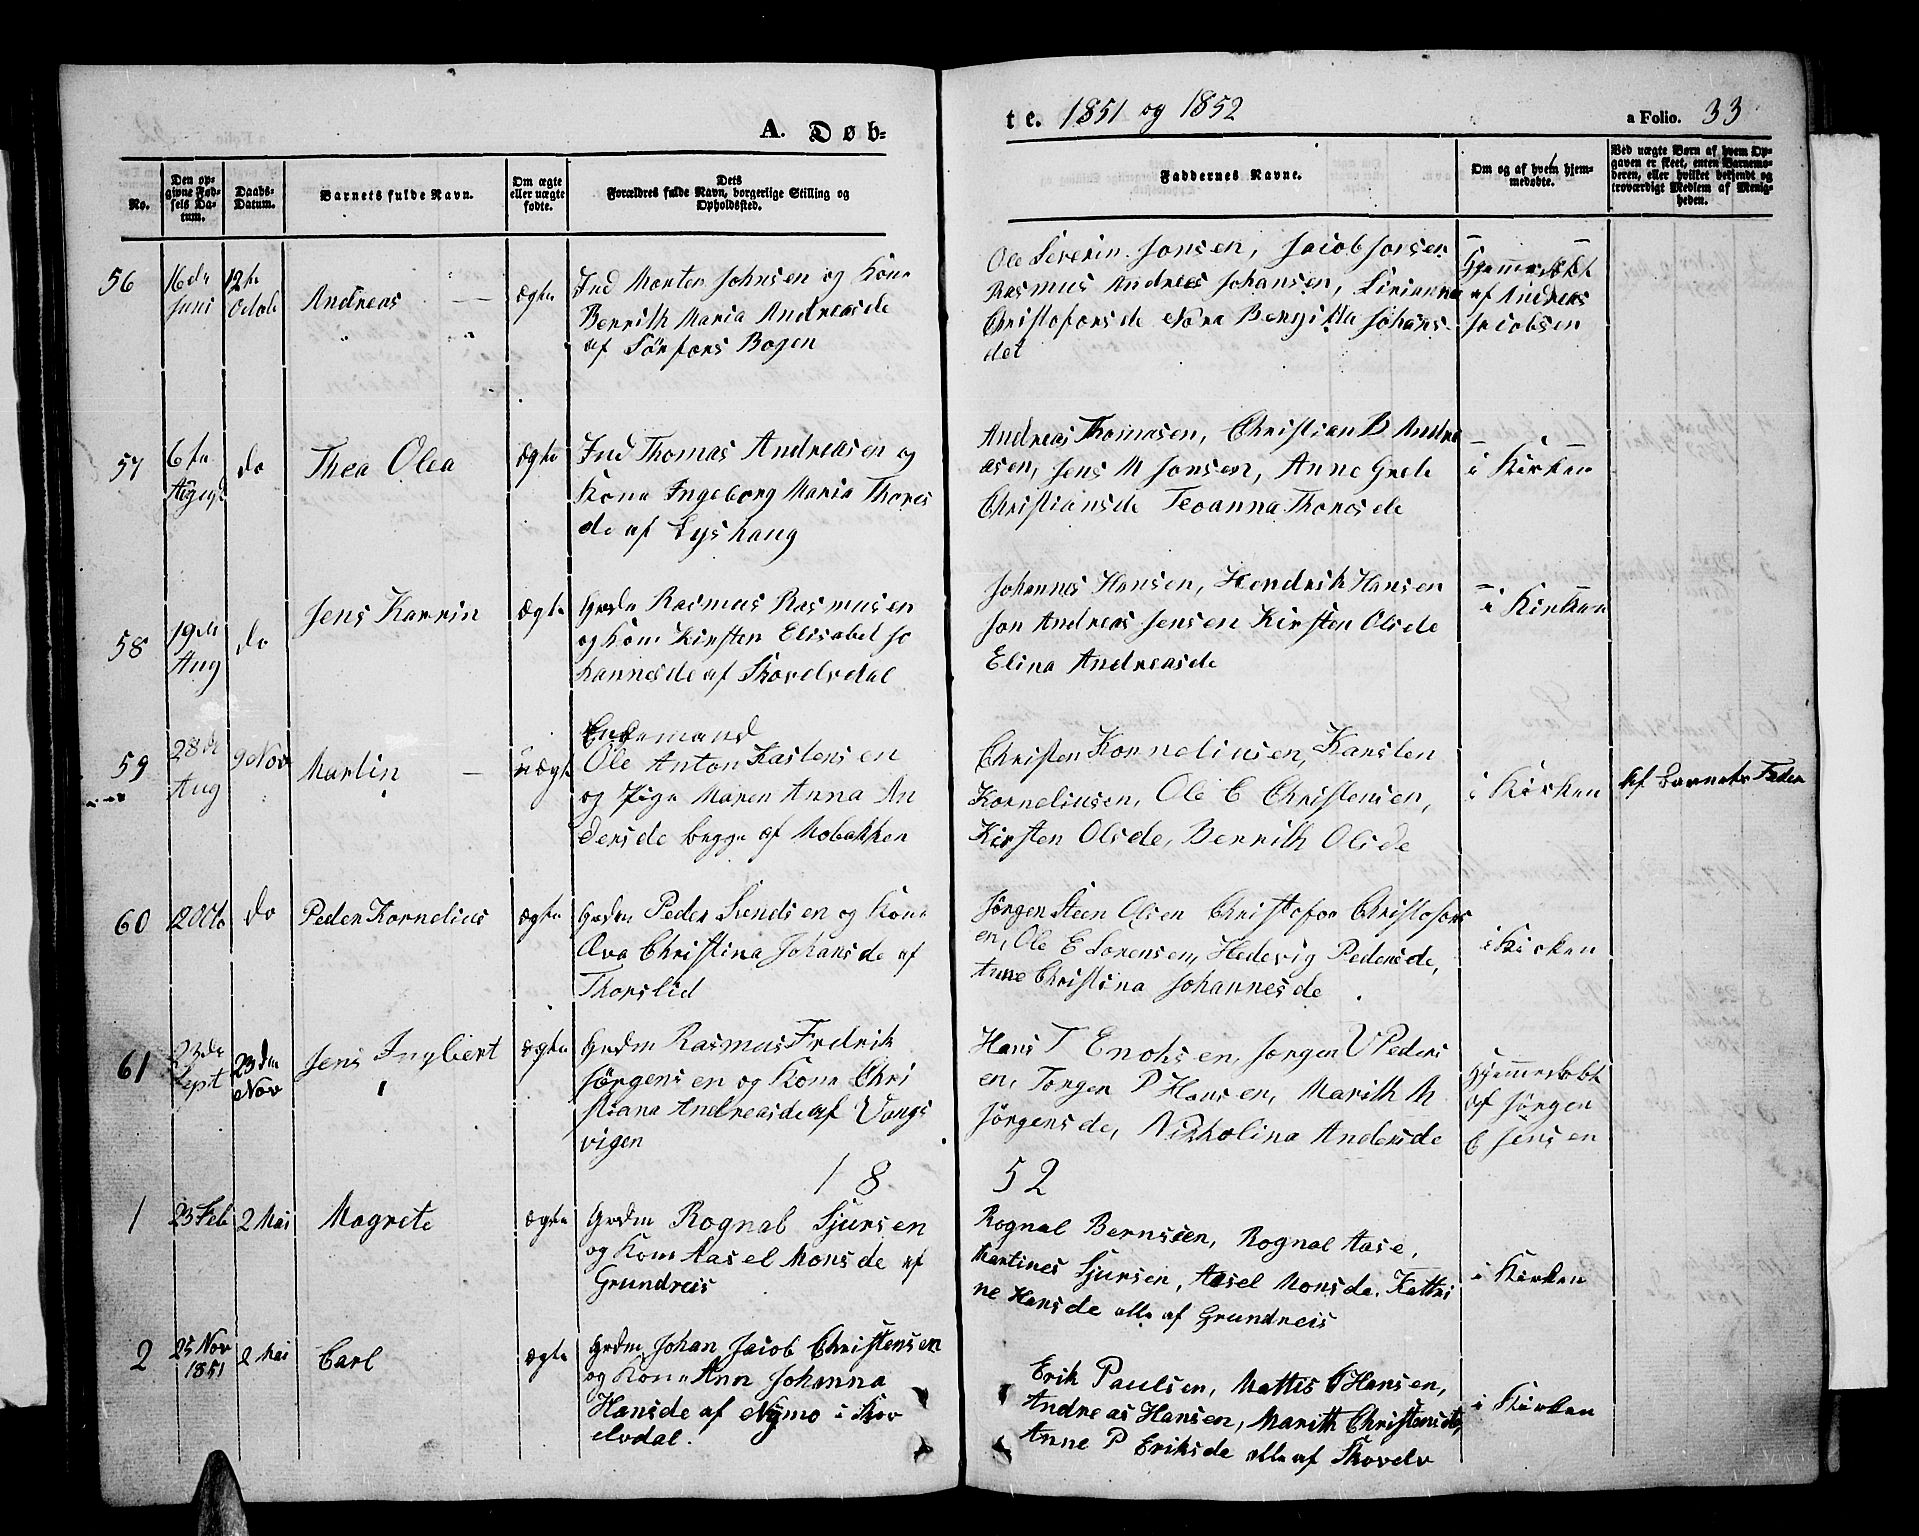 A. Døb-
te. 1851 og 1852
a Folio. 33
No.
Den opgivne Fødsels Datum.
Daabs-Datum.
Barnets fulde Navn.
Om ægte eller uægte fødte.
Dets Forældres fulde Navn, borgerlige Stilling og Opholdssted.
Faddernes Navne.
Om og af hvem hjemmedøbte.
Ved uægte Børn af hvem Opgaven er skeet, enten Barnemoderen, eller hvilket bekjendt og troværdigt Medlem af Menigheden.
56
16de Juni
12te Octob
Andreas
Ægte
Ind Morten Johnsen og Kone
Berrith Maria Andreasde
af Sørfors Bogen
Ole Severin Jonsen, Jacob Jonsen
Rasmus Andreas Johansen, Sirianna
Christoforsde Nora Bergitta Johans
det
Hjemmedøbt
af Andreas
Jacobsen
57
6te August
do
Thea Olea
Ægte
Ind Thomas Andreasen og
Kone Ingeborg Maria Thores
de af Lyshaug
Andreas Thomasen, Christian B Andre
asen, Jens M Jonsen, Anne Grete
Christiansde Teoanna Thoresde
i Kirken
58
19de Aug
do
Jens Karrin
Ægte
Grdm Rasmus Rasmusen
og Kone Kirsten Elisabet Jo
hannesde af Skovelvdal
Johannes Hansen, Hendrik Hansen
Jon Andreas Jensen Kirsten Olsde
Elina Andreasde
i Kirken
59
28de Aug
9 Nov
Martin
uægte
Enkemand
Ole Anton Kastensen
og Pige Maren Anna An
dersde begge af Mobakken
Christen Korneliusen, Karsten
Korneliusen, Ole C Christensen,
Kirsten Olsde, Berrith Olsde
i Kirken
Af Barnets Fader
60
12 Octo
do
Peder Kornelius
Ægte
Grdm Peder Svendsen og Kone
Æva Christina Johansde af
Thorslid
Jørgen Steen Olsen Christofor Christofors
en, Ole E Sorensen, Hedevig Pedersde,
Anne Christina Johannesde
i Kirken
61
23de Sept
23de Nov
Jens Ingbert
Ægte
Grdm Rasmus Fredrik
Jørgensen og Kone Chri
stiana Andreasde af Vangs
vigen
Hans T Enoksen, Jørgen V Peders
en, Torger P Hansen, Marith M
Jørgensde, Nikkolina Andersde
Hjemmedøbt
af Jørgen
E Jensen
1852
1
23 Feb
2 Mai
Magrete
Ægte
Grdm Rognal Sjursen
og Kone Aasel Monsde af
Grundreis
Rognal Bernsien, Rognal Aase,
Martines Sjursen, Aasel Monsde, Kattri
ne Hansde alle af Grundreis
i Kirken
2
25 Nov 1851
2 Mai
Carl
Ægte
Grdm Johan Jacob Christensen
og Kone Ann Johanna
Hansde af Nymo i Skov
elvdal.
Erik Paulsen, Mattis O Hansen,
Andreas Hansen, Marith Christensde,
Anne P Eriksde alle af Skovelv
i Kirken